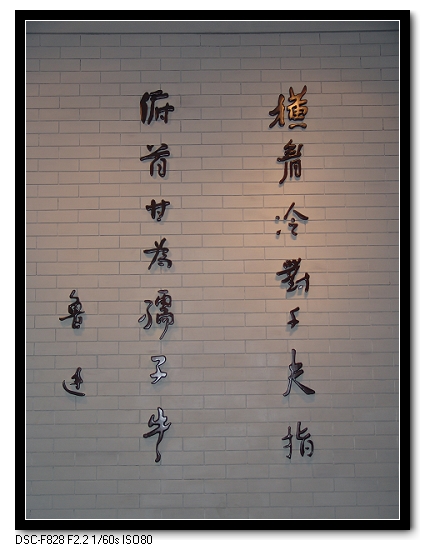 橫眉冷對千夫指
俯首甘為孺子牛
魯迅
DSC-F828 F2.2 1/60s ISO80